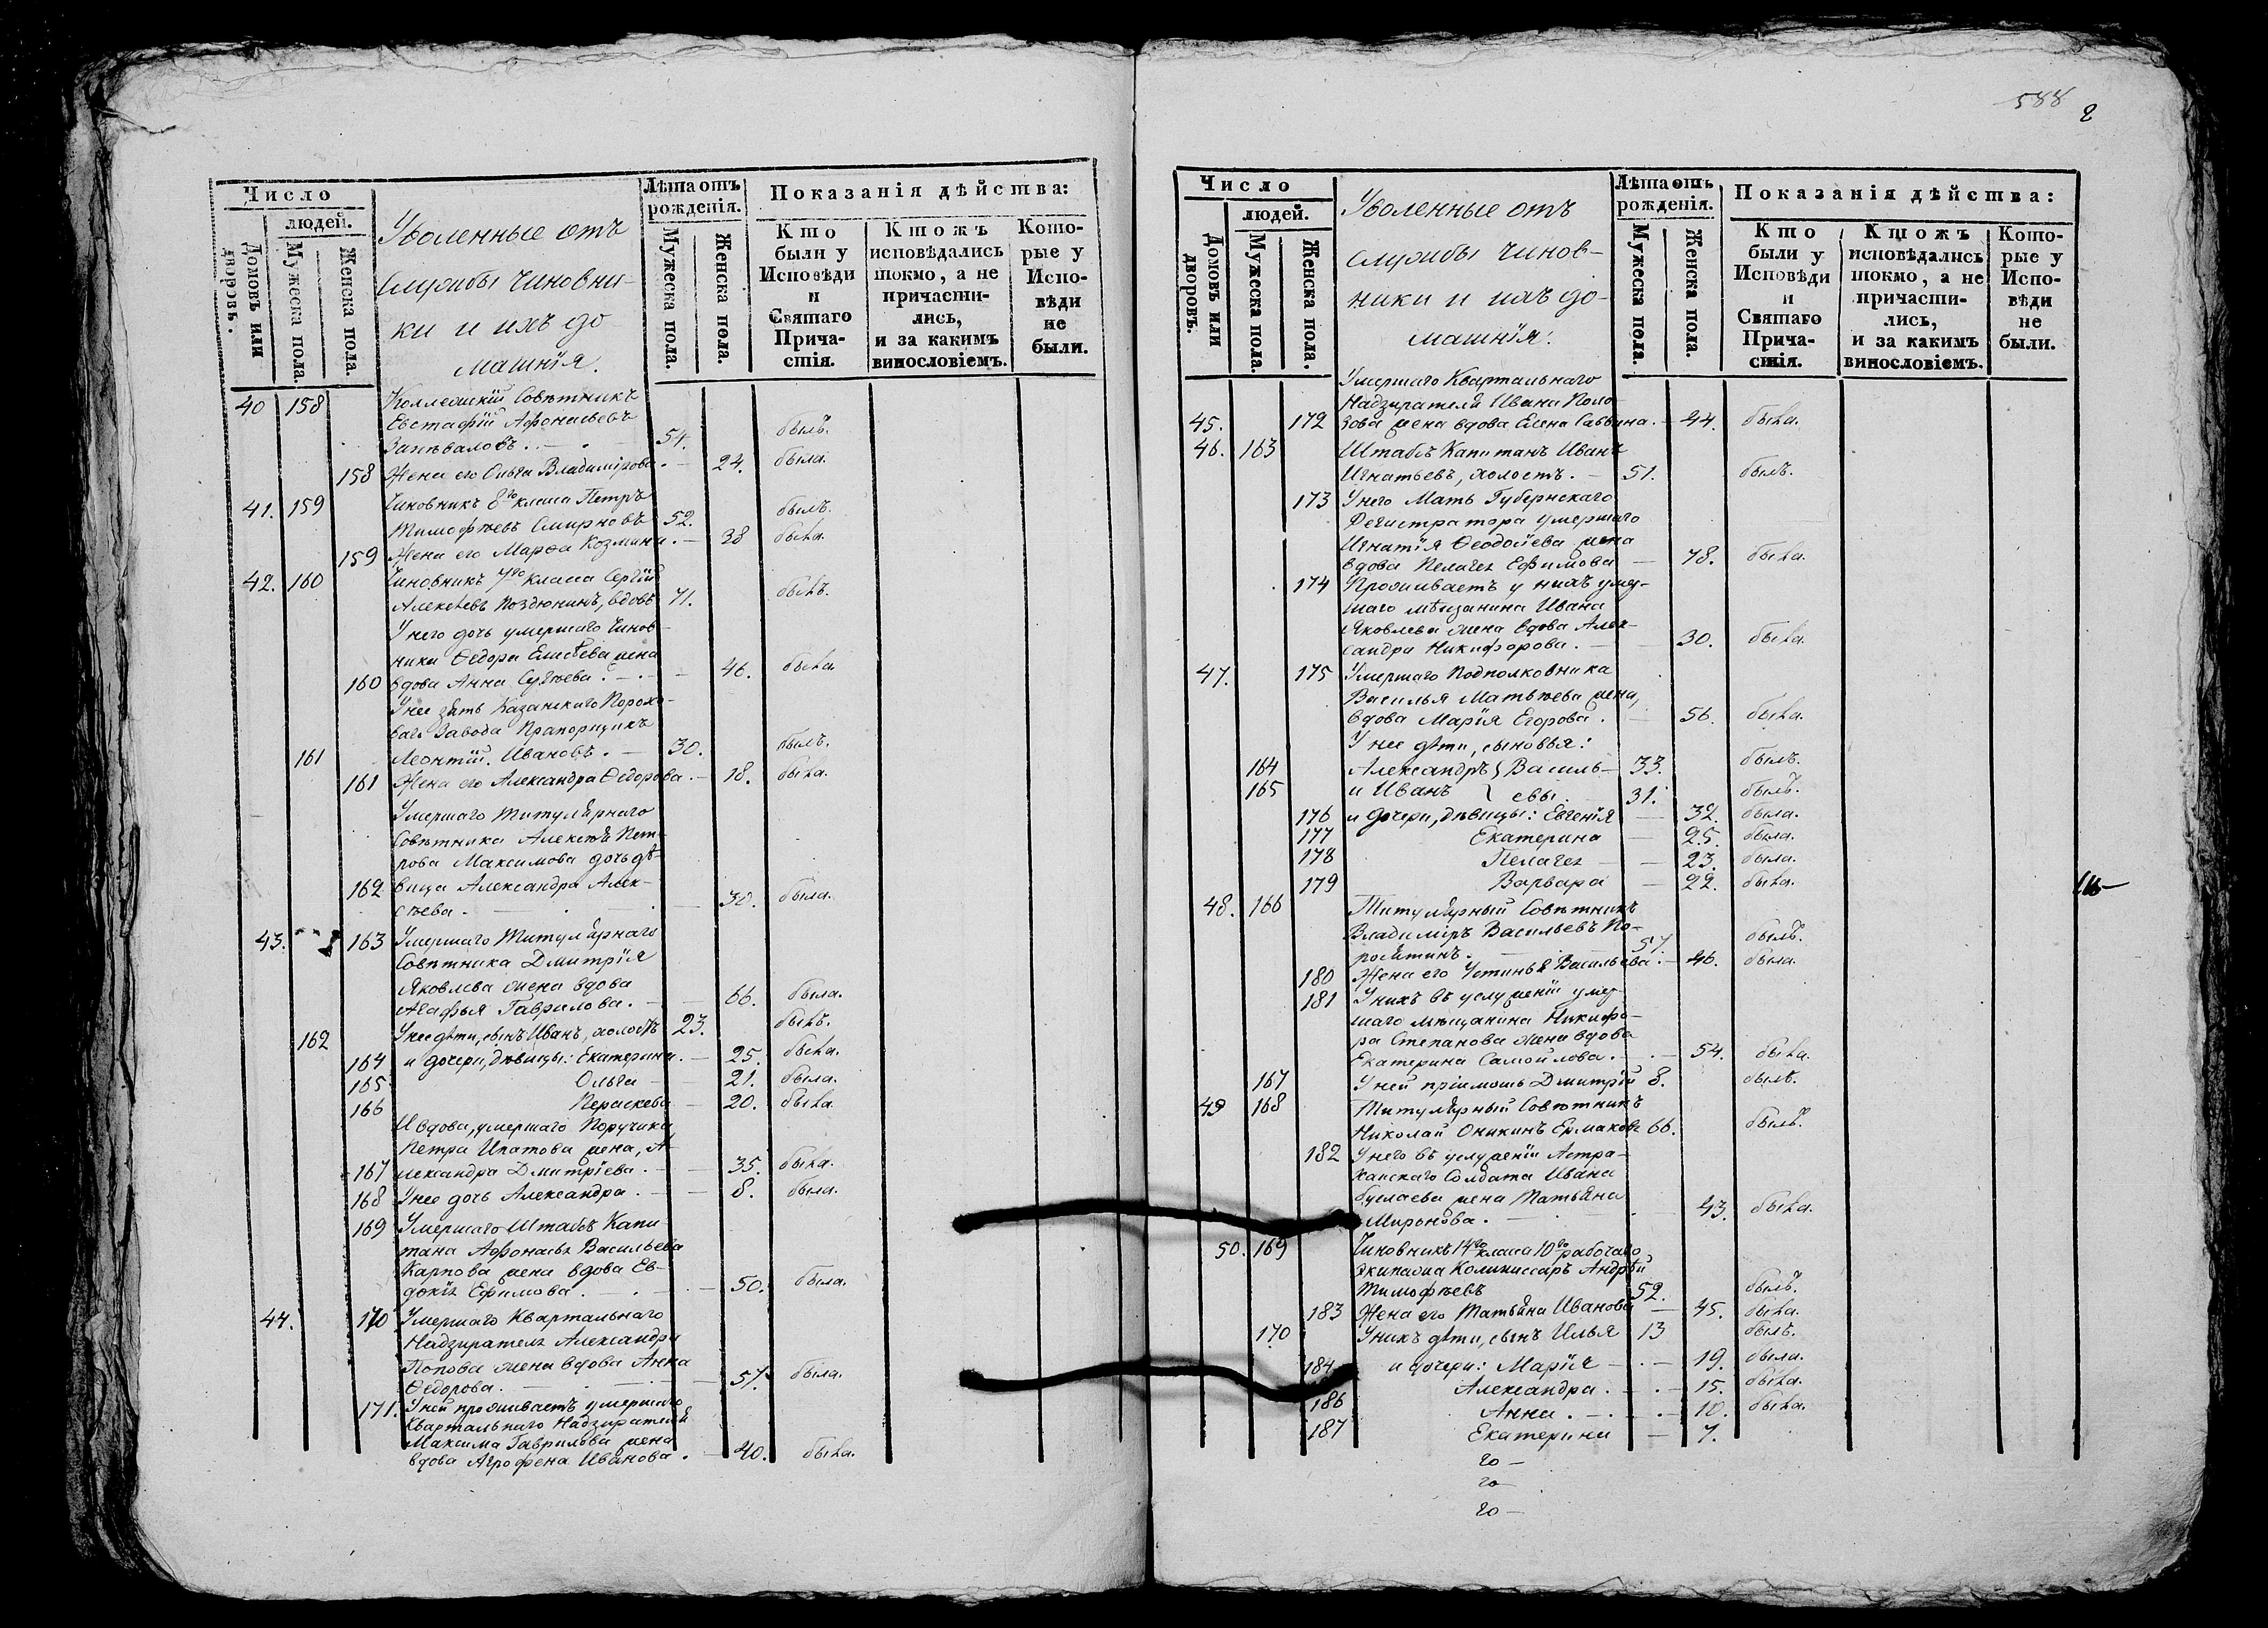 Число
людей.
Домовъ или дворовъ.
Мужеска пола.
Женска пола.
Уволенные отъ
службы чиновни-
ки и ихъ до
машнія.
Лѣта отъ рожденія.
Мужеска пола.
Женска пола.
Показанія дѣйства:
Кто были у Исповѣди и Святаго Прича-стія.
Ктожъ исповѣдались токмо, а не причасти-лись, и за какимъ винословіемъ.
Кото-рые у Испо-вѣди не были.
40 158 Коллежскій Совѣтникъ
Евстафій Афонасьевъ
Запѣваловъ. 54. былъ.
158 Жена его Ольга Владимірова. 24. была.
41. 159 Чиновникъ 8го класса Петръ
Тимофѣевъ Смирновъ 52. былъ.
159 Жена его Марфа Козмина. 38 была.
42. 160 Чиновникъ 7го класса Сергій
Алексѣевъ Поздюнинъ, вдовъ 71. былъ.
У него дочь умершаго Чинов-
ника Ѳедора Елисѣева жена
160 вдова Анна Сергѣева. 46. была
У нее зять Казанскаго Порохо-
ваго Завода Прапорщикъ
161 Леонтій Ивановъ. 30. былъ.
161 Жена его Александра Ѳедорова. 18. была.
Умершаго Титулярнаго
Совѣтника Алексѣя Пет-
рова Максимова дочь дѣ-
162 вица Александра Алек-
сѣева. 30. была.
43. 163 Умершаго Титулярнаго
Совѣтника Дмитрія
Яковлева жена вдова
Агафья Гаврилова. 66. была.
162 У нее дѣти, сынъ Иванъ, холостъ 23. былъ.
164 и дочери, дѣвицы: Екатерина. 25. была.
165 Ольга 21. была.
166 Параскева 20. была.
И вдова, умершаго Поручика
Петра Ипатова жена, А-
167 лександра Дмитріева. 35. была.
168 У нее дочь Александра. 8. была.
169 Умершаго Штабъ Капи
тана Афонасья Васильева
Карпова жена вдова Ев-
докія Ефимова. 50. была.
44. 170 Умершаго Квартальнаго
Надзирателя Александра
Попова жена вдова Анна
Ѳедорова. 57. была.
171. У ней проживаетъ умершаго
Квартальнаго Надзирателя
Максима Гаврилова жена
вдова Агрофена Иванова. 40. была.
588
2
Число
людей.
Домовъ или дворовъ.
Мужеска пола.
Женска пола.
Уволенные отъ
службы чинов-
ники и ихъ до-
машнія:
Лѣта отъ рожденія.
Мужеска пола.
Женска пола.
Показанія дѣйства:
Кто были у Исповѣди и Святаго Прича-стія.
Ктожъ исповѣдались токмо, а не причасти-лись, и за какимъ винословіемъ.
Кото-рые у Испо-вѣди не были.
Умершаго Квартальнаго
Надзирателя Ивана Поло-
45. 172 зова жена вдова Елена Саввина. 44. была.
46. 163 Штабъ Капитанъ Иванъ
Игнатьевъ, холостъ. 51. былъ.
173 У него Мать Губернскаго
Регистратора умершаго
Игнатія Ѳеодосіева жена
вдова Пелагея Ефимова 78. была.
174 Проживаетъ у нихъ умер-
шаго мѣщанина Ивана
Яковлева жена вдова Алек-
сандра Никифорова. 30. была.
47. 175 Умершаго Подполковника
Василья Матвѣева жена,
вдова Марія Егорова. 56. была.
У нее дѣти, сыновья:
164 Александръ } Василь- 33. былъ.
165 и Иванъ } евы. 31. былъ.
176 и дочери, дѣвицы: Евгенія 32. была.
177 Екатерина 25. была.
178 Пелагея 23. была.
179 Варвара 22. была.
48. 166 Титулярный Совѣтникъ
Владиміръ Васильевъ По-
росятинъ. 57. былъ.
180 Жена его Устинья Васильева. 46. была.
181 У нихъ въ услуженіи умер-
шаго мѣщанина Никифо-
ра Степанова жена вдова
Екатерина Самойлова. 54. была.
167 У ней пріимошъ Дмитрій 8. былъ.
49 168 Титулярный Совѣтникъ
Николай Оникинъ Ермаковъ 66. былъ.
182 У него въ услуженіи Астра-
ханскаго Солдата Ивана
Буслаева жена Татьяна
Миронова. 43. была.
50. 169 Чиновникъ 14го класса 10го рабочаго
Экипажа Коммиссаръ Андрей
Тимофѣевъ 52. былъ.
183 Жена его Татьяна Иванова 45. была.
170 У нихъ дѣти, сынъ Илья 13 былъ.
184 и дочери: Марія 19. была.
Александра. 15. была.
186 Анна. 10. была.
187 Екатерина 7.